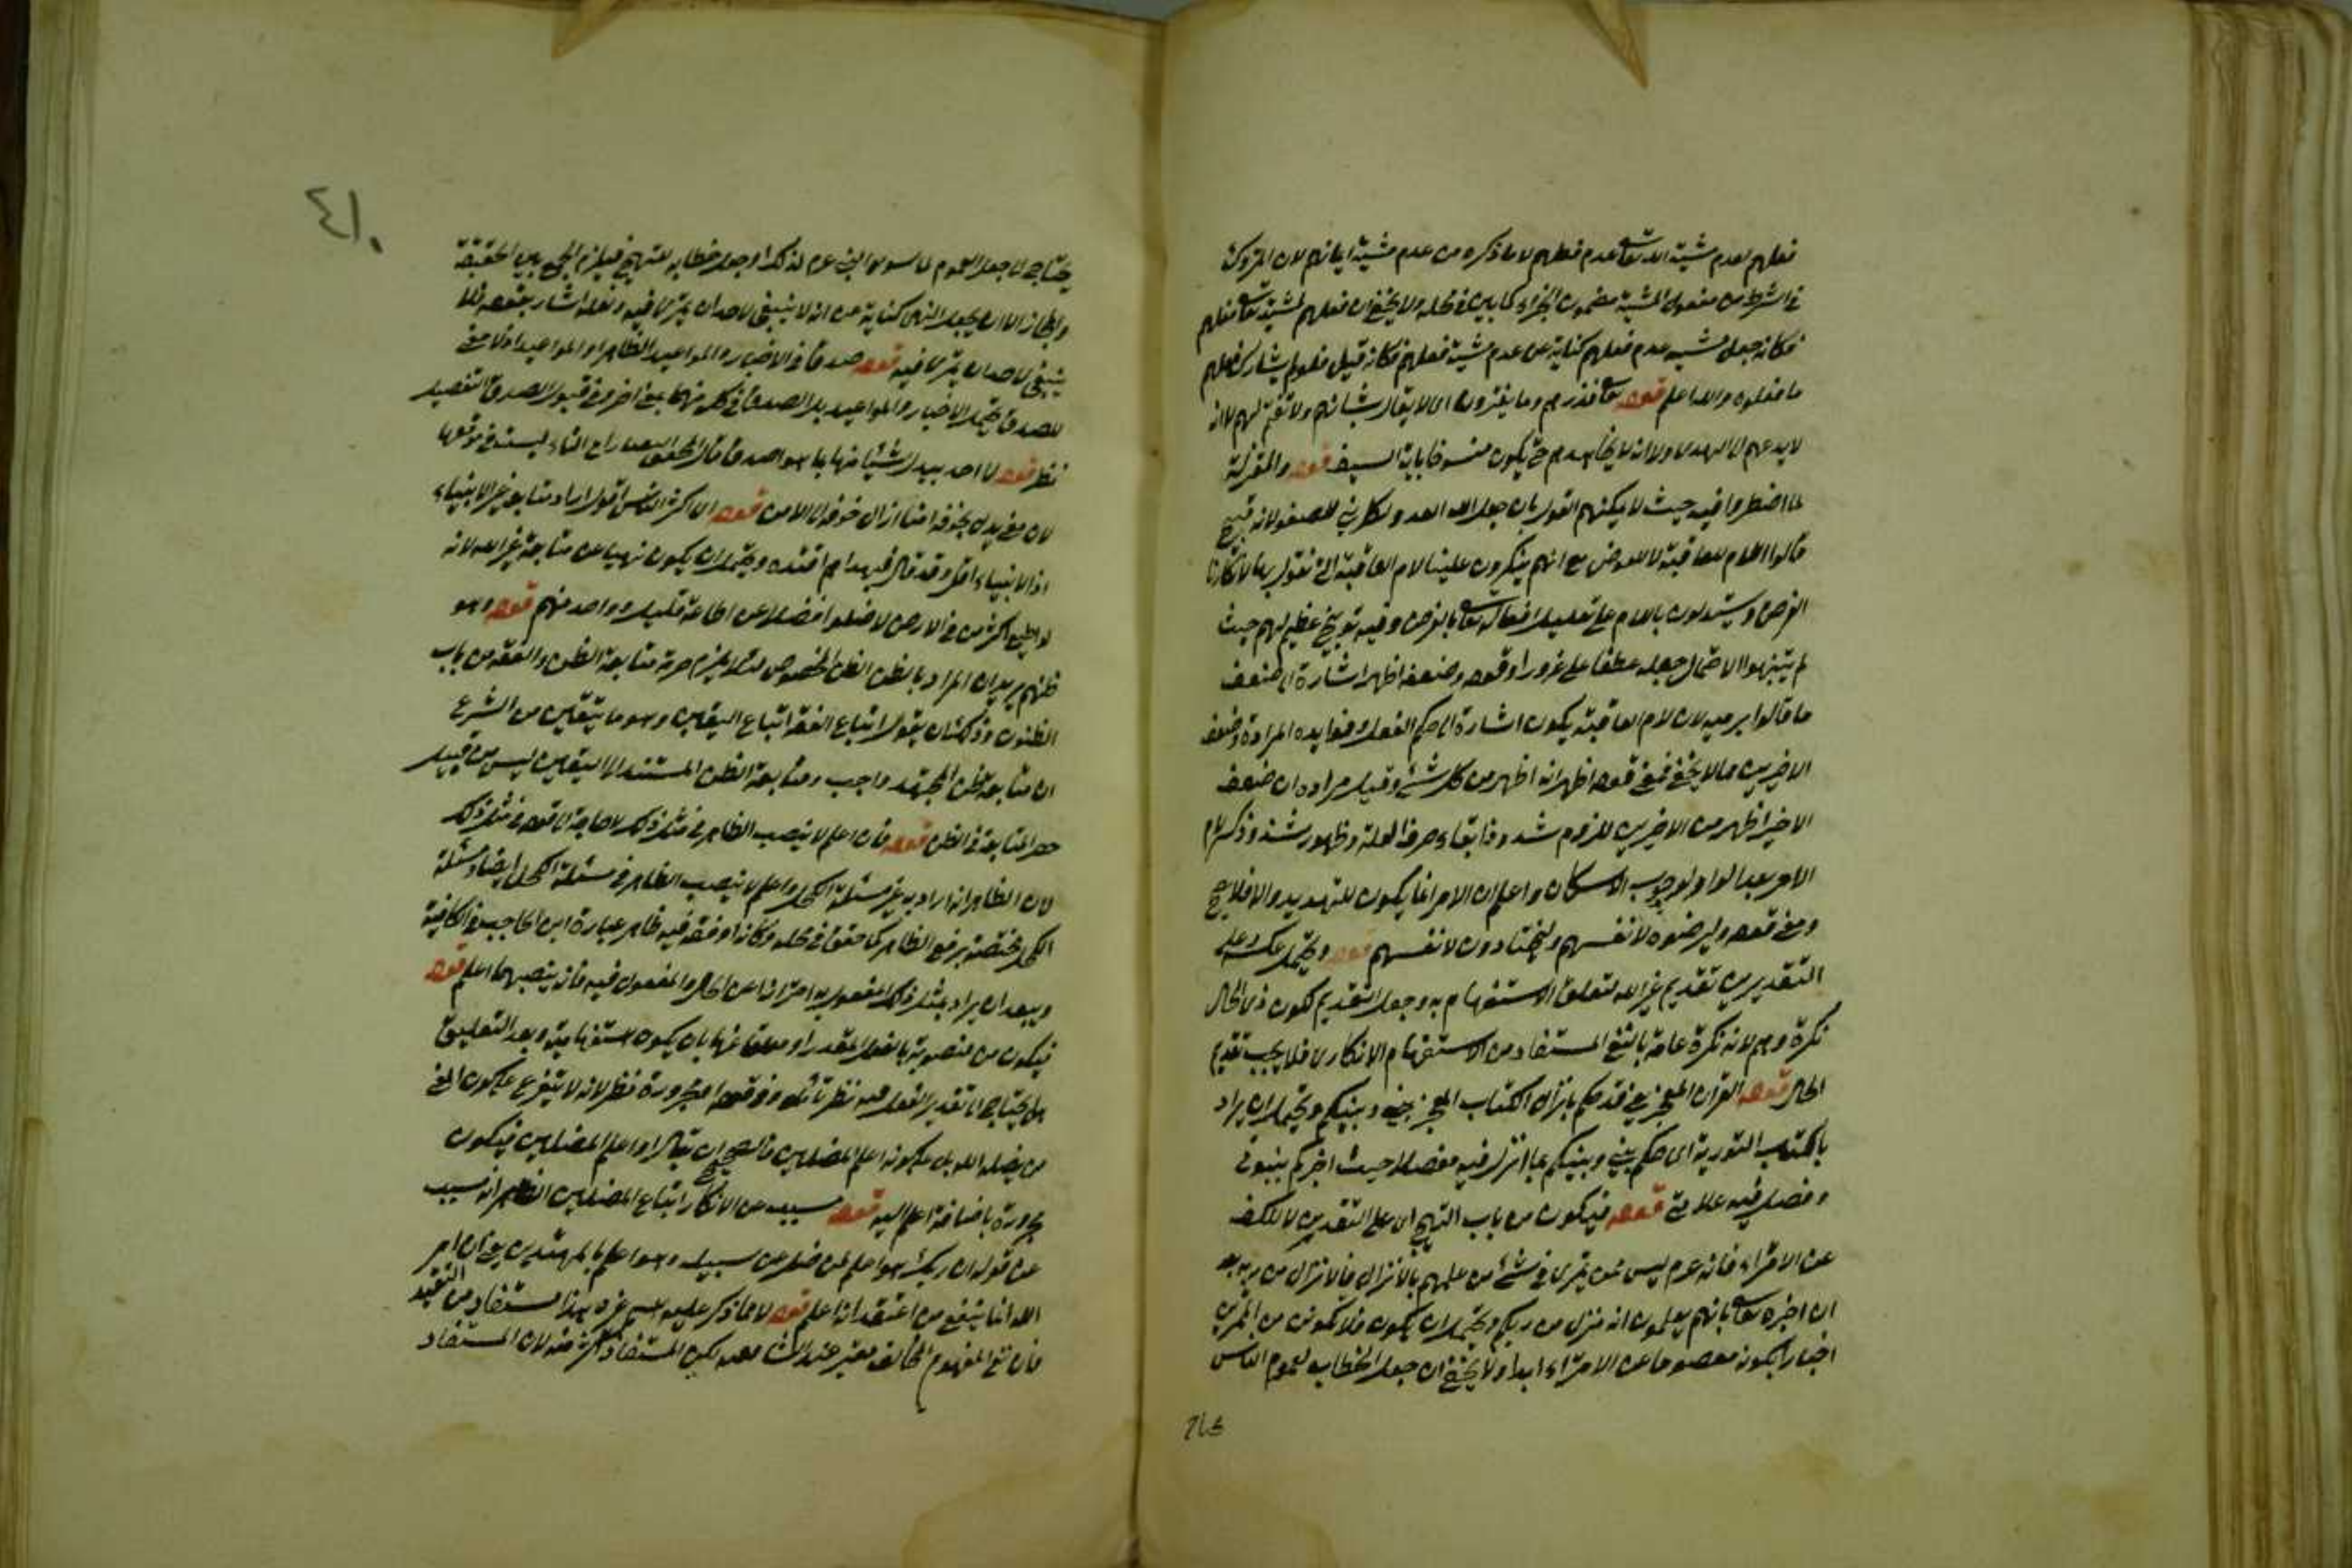 فعلهم لعدم مشية الله تعالى عدم فعلهم لا ما ذكره من عدم مشية ايمانهم لان المتروك
في الشرط من مفعول المشية مضمون الجزاء كما بين في محله ولا يخفى ان فعلهم لمشية تعالى فعلهم
فكانه جعل مشية عدم فعلهم كناية عن عدم مشية فعلهم فكانه قيل فلو لم يشا ربك فعلهم
ما فعلوه والله اعلم قوله تعالى فذرهم وما يفترون اى لا يقال بشانهم ولا تغتم لهم لا انه
لا يدعهم الى الهدى ولا انه لا يجاهدهم حتى يكون منسوخا باية السيف قوله والمعتزلة
لما اضطروا فيه حيث لا يمكنهم القول بان جعل الله العدو لكل نبي للصغو لانه قبيح
قالوا اللام للعاقبة لا للغرض مع انهم ينكرون علينا لام العاقبة التي نقول بها لانكارنا
الغرض ويستدلون باللام على تعليل افعاله تعالى بالغرض وفيه توبيخ عظيم لهم حيث
لم يتنبهوا لاحتمال جعله عطفا على غرورا وقوله وضعفه اظهر اشارة الى ضعف
ما قالوا برميه لان لام العاقبة يكون اشارة الى حكم الفعل وفوايده المرادة وضعف
الاخيرين مما لا يخفى فمعنى قوله اظهر انه اظهر من كل شئ وقيل مراده ان ضعف
الاخير اظهر من الاخيرين للزوم شذوذ ابقاء حرف العلة وظهور شذوذ كسر لام
الامر بعد الواو لوجوب الاسكان واعلم ان الامر انما يكون للتهديد والا فلا يصح
ومعنى قوله وليرضوه لانفسهم وليختارون لانفسهم قوله ويحتمل عكسه وعلى
التقديرين تقديم غير الله لتعلق الاستفهام به وجعل التقديم لكون ذى الحال
نكرة وهم لانه نكرة عامة بالنفي المستفاد من الاستفهام الانكارى فلا يجب تقديم
الحال قوله القرآن المعجز يعني قد حكم بانزال الكتاب المعجز بيني وبينكم ويحتمل ان يراد
بالكتاب التورية اى حكم بيني وبينكم بما انزل فيه مفصلا حيث اخبركم بنبوتي
وفصل فيه علامتي قوله فيكون من باب التهييج اى على التقديرين لا للكف
عن الامتراء فانه عم ليس ممن يمترى في شئ من علمهم بالانزال فى الانزال من ربه بعد
ان اخبره تعالى بانهم يعلمون انه منزل من ربكم ويحتمل ان يكون فلا تكونن من الممترين
اخبارا بكونه معصوما عن الامتراء ابدا ولا يخفى ان جعل الخطاب لعموم الناس
٤١٠
يحتاج الى جعل العموم لما سوى النبي عم لذلك او جعل خطابه للتهييج فيلزم الجمع بين الحقيقة
والمجاز الا ان يجعل النهى كناية عن انه لا ينبغى لاحد ان يمترى فيه ولعله اشار بقوله فلا
ينبغى لاحد ان يمترى فيه قوله صدقا في الاخبار والمواعيد الظاهر او المواعيد اذ لا معنى
للصدق يحتمل الاخبار والمواعيد بل الصدق في كل منهما بمعنى اخر وفي قبول الصدق التفصيل
نظر قوله لا احد يبدل شيئا منها بما هو اصدق قال المحقق التفتازاني الباء ليست في موقعها
لان معنى يبدل بخوفه امنا ازال خوفه الى الامن قوله اى اكثر الناس اقول اراد متابعة غير الانبياء
اذ الانبياء اقل وقد قال فبهداهم اقتده ويحتمل ان يكون نهيا عن متابعة غير الله لانه
لو اطيع اكثر من في الارض لاضلوا فضلا عن اطاعة قليل وواحد منهم قوله وهو
ظنهم يريد ان المراد بالظن الظن المخصوص لئلا يلزم حرمة متابعة الظن والفقه من باب
الظنون وذلك ان يقول اتباع الفقه اتباع اليقين وهو ما يتيقن من الشرع
ان متابعة ظن المجتهد واجب ومتابعة الظن المستند الى اليقين ليس من قبيل
حصر المتابعة في الظن قوله فان اعلم لا ينصب الظاهر في مثل ذلك لا حاجة الى قوله في مثل ذلك
لان الظاهر انه اراد به غير مسئلة الكحل واعلم لا ينصب الظاهر في مسئلة الكحل ايضا ومسئلة
الكحل مختصة برفع الظاهر كما حقق في محله وكانه اوقعه فيه ظاهر عبارة ابن الحاجب في الكافية
ويبعد ان يراد بمثل ذلك المفعول به احترازا عن الحال والمفعول فيه فانه ينصبهما اعلم قوله
فيكون من منصوبة بالفعل المقدر او معلقا عنها بان يكون استفهامية وبعد التعليق
هل يحتاج الى تقدير الفعل فيه نظر تامل وفي قوله او مجرورة نظر لانه لا يتفرع على كون المعنى
من يضله الله بل على كونه اعلم المضلين فالصحيح ان يقال او اعلم المضلين فيكون
مجرورة باضافة اعلم اليه قوله مسبب عن الانكار اتباع المضلين الظاهر انه مسبب
عن قوله ان ربك هو اعلم من يضل عن سبيله وهو اعلم بالمهتدين يعني ان امر
الله انما ينفع من اعتقد انه اعلم قوله لا مما ذكر عليه اسم غيره هذا مستفاد من التقييد
فان نفع المفهوم المخالف معتبر عند الشافعي لكن المستفاد اكثر منه لان المستفاد